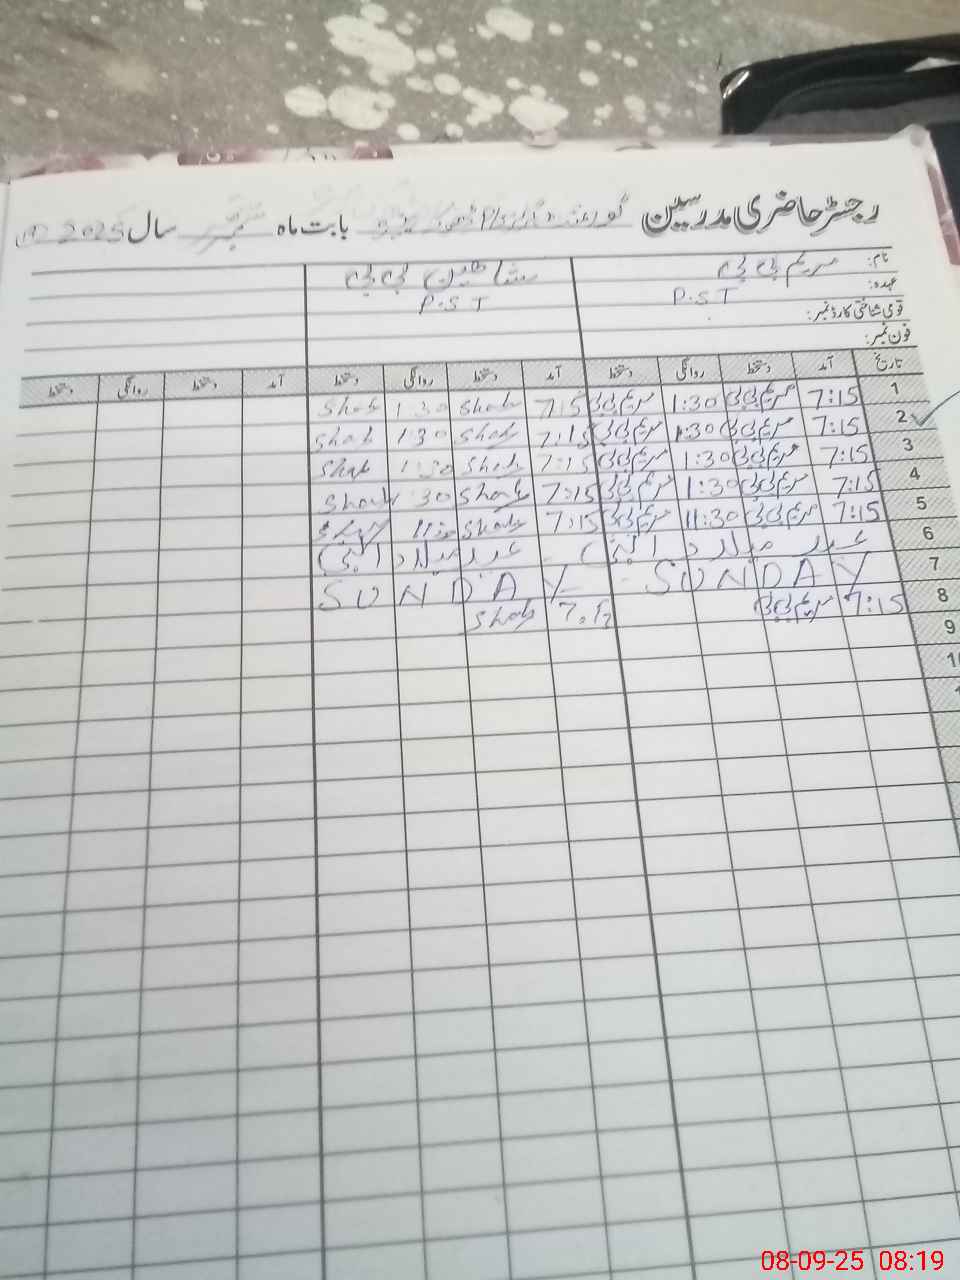 رجسٹر حاضری مدرسین گورنمنٹ بابت ماہ ستمبر سال 2025
نام: مریم بی بی شاھین بی بی
عہدہ: P.S.T P.S.T
قومی شناختی کارڈ نمبر:
فون نمبر:
تاریخ آمد دستخط روانگی دستخط آمد دستخط روانگی دستخط آمد دستخط روانگی دستخط
1 7:15 مریم بی بی 1:30 مریم بی بی 7:15 Shab 1:30 Shab
2 7:15 مریم بی بی 1:30 مریم بی بی 7:15 Shab 1:30 Shab
3 7:15 مریم بی بی 1:30 مریم بی بی 7:15 Shab 1:30 Shab
4 7:15 مریم بی بی 1:30 مریم بی بی 7:15 Shab 1:30 Shab
5 7:15 مریم بی بی 11:30 مریم بی بی 7:15 Shab 11:30
6 عید میلاد النبی عید میلاد النبی
7 SUNDAY SUNDAY
8 7:15 مریم بی بی 7:15 Shab
9
10
08-09-25 08:19